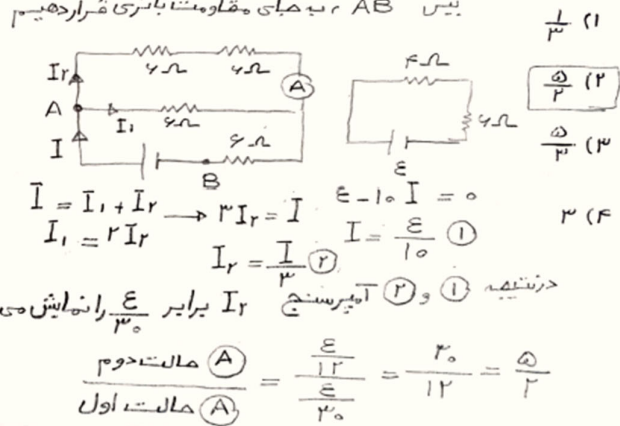 بین AB ، به جای مقاومت باتری قرار دهیم
۱) ۱/۳
۲) ۵/۲
۳) ۵/۳
۴) ۳
۶Ω ۶Ω
I۲
A
A
I۱ ۶Ω
I
۶Ω
B
۴Ω
۶Ω
ε
I = I۱ + I۲ → ۳I۲ = I
I۱ = ۲I۲
I۲ = I/۳ ②
ε - ۱۰ I = ۰
I = ε/۱۰ ①
در نتیجه ① و ② آمپرسنج I۲ برابر ε/۳۰ را نمایش می
حالت دوم A / حالت اول A = (ε/۱۲)/(ε/۳۰) = ۳۰/۱۲ = ۵/۲